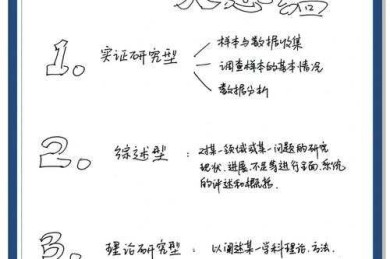 1. 实证研究型
样本与数据收集
调查样本的基本情况
数据分析
2. 综述型：对某一领域或某一问题的研究
现状、进展、不足等进行全面、系统
的评述和概括.
3. 理论研究型：以阐述某一学科理论、方法、